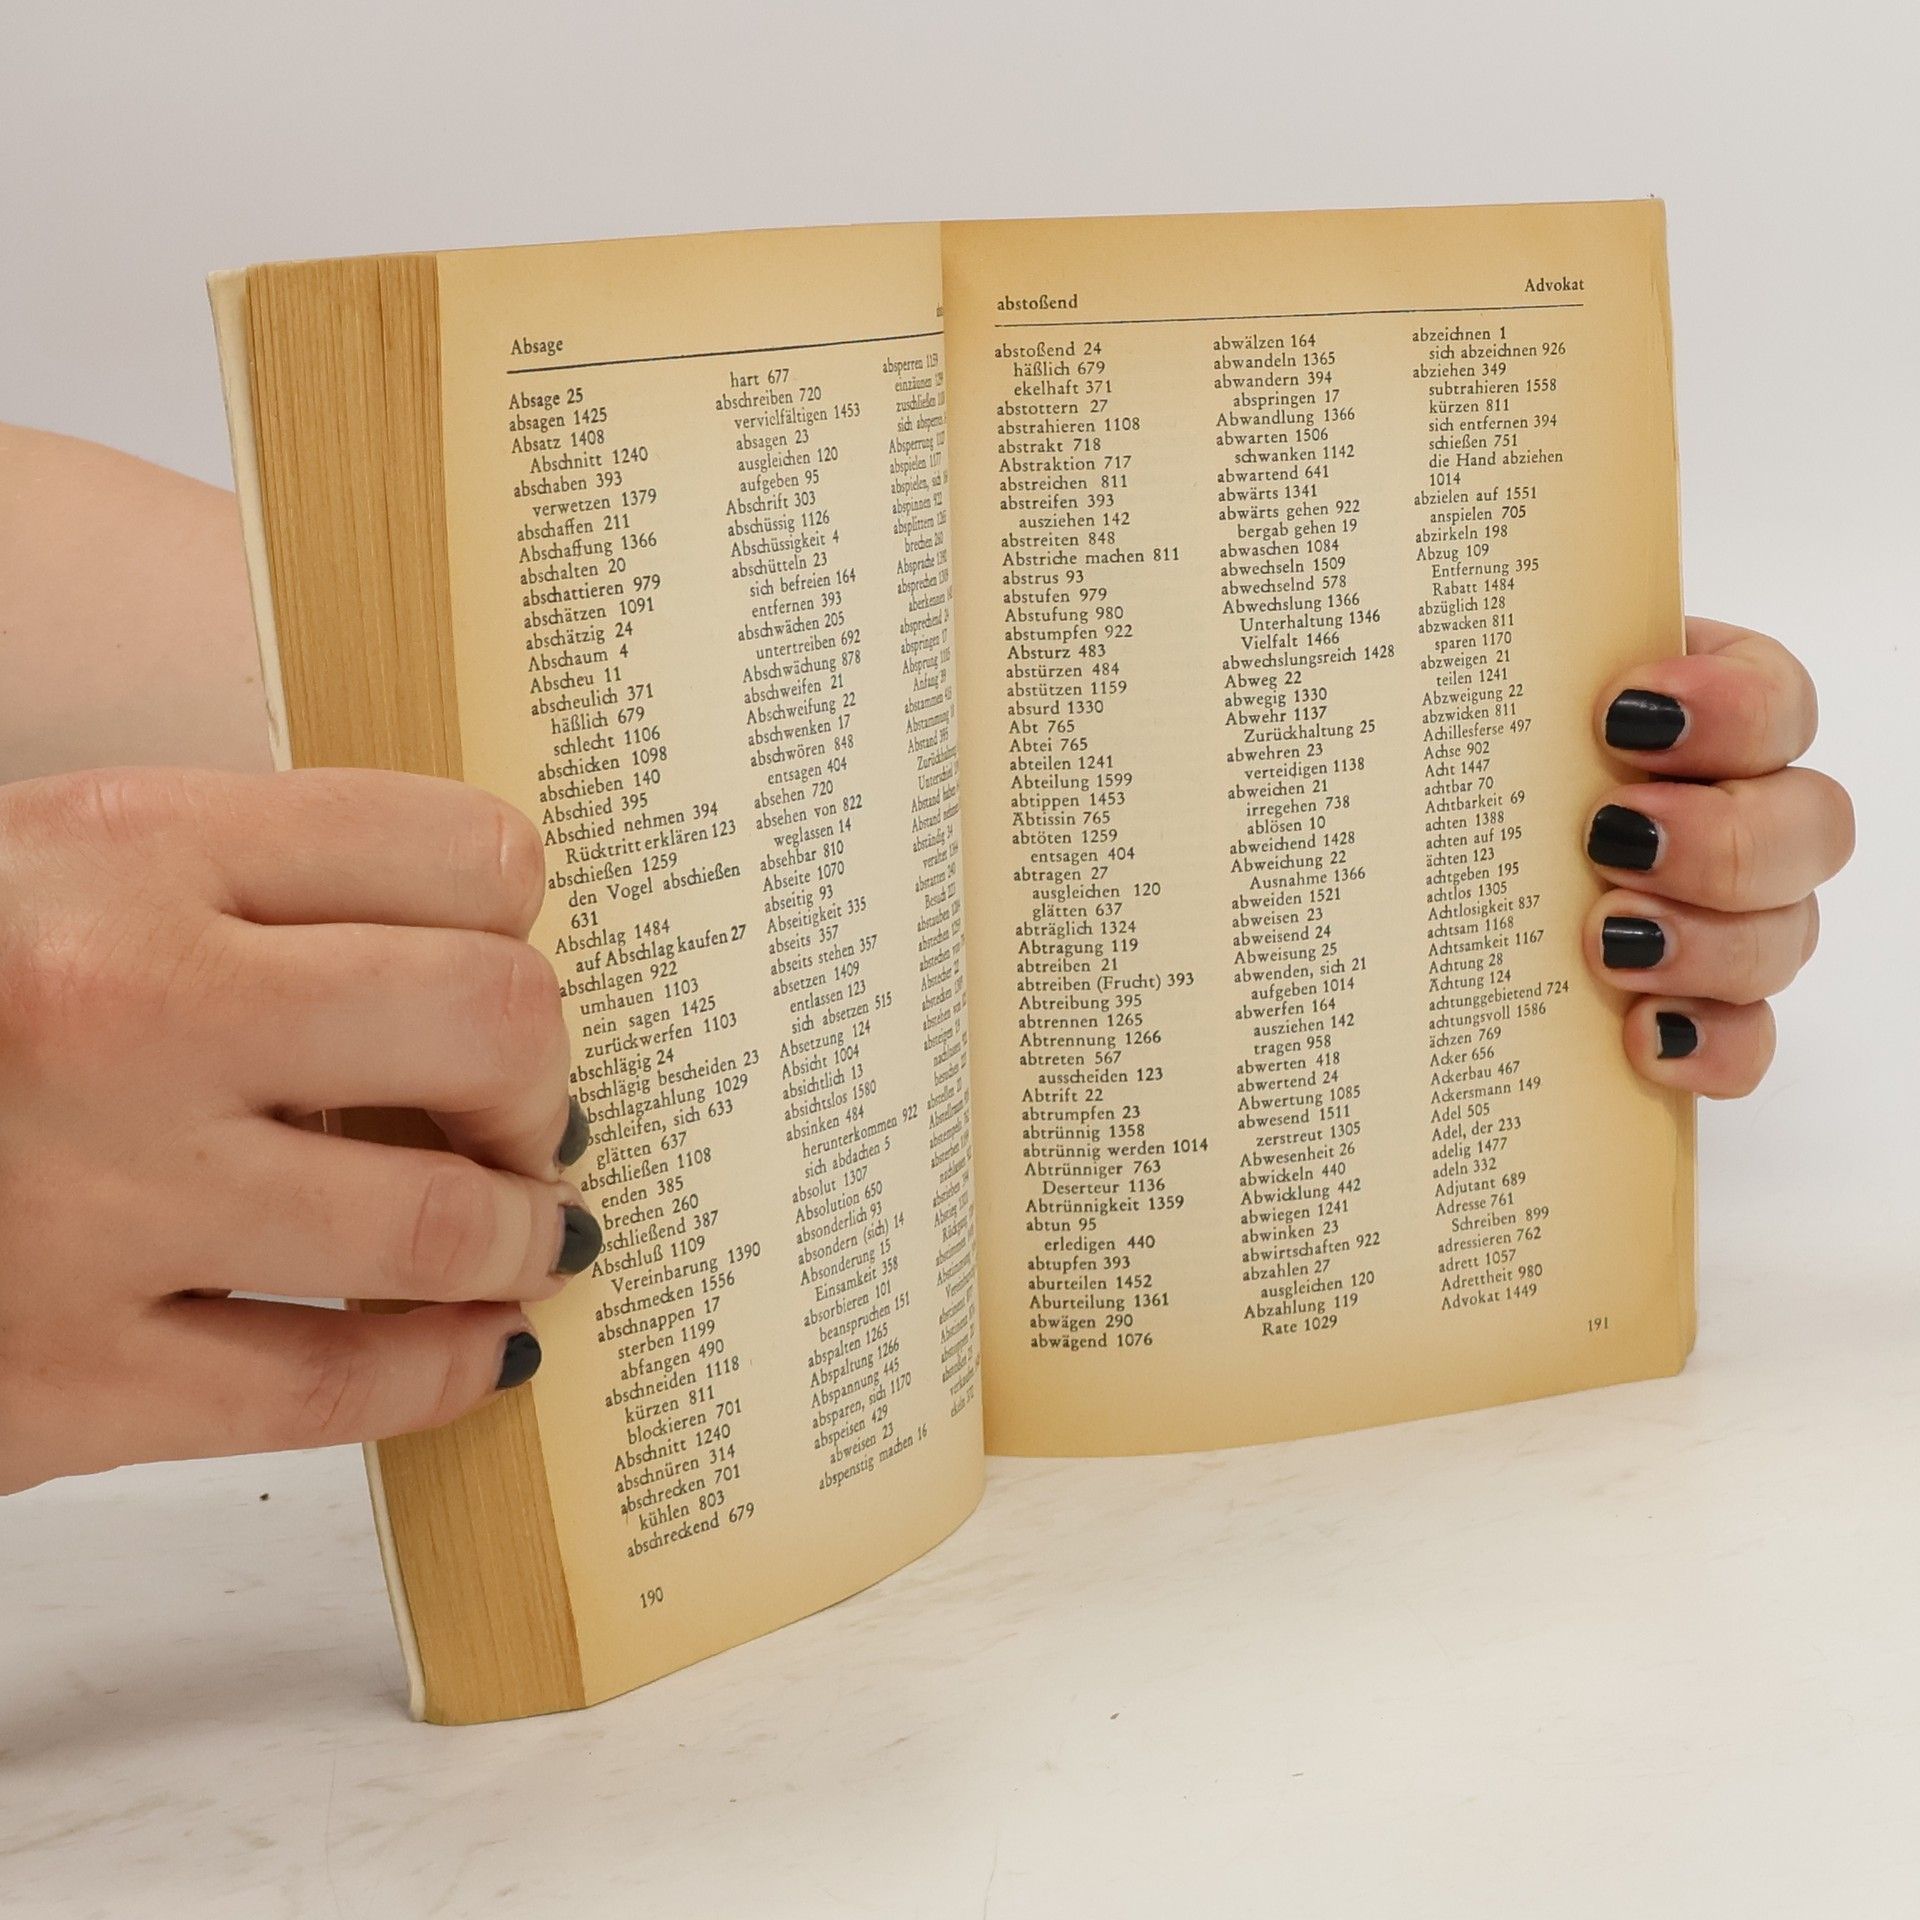 Absage
Absage 25
absagen 1425
Absatz 1408
Abschnitt 1240
abschaben 393
verwetzen 1379
abschaffen 211
Abschaffung 1366
abschalten 20
abschattieren 979
abschätzen 1091
abschätzig 24
Abschaum 4
Abscheu 11
abscheulich 371
häßlich 679
schlecht 1106
abschicken 1098
abschieben 140
Abschied 395
Abschied nehmen 394
Rücktritt erklären 123
abschießen 1259
den Vogel abschießen
631
Abschlag 1484
auf Abschlag kaufen 27
abschlagen 922
umhauen 1103
nein sagen 1425
zurückwerfen 1103
abschlägig 24
abschlägig bescheiden 23
bschlagzahlung 1029
bschleifen, sich 633
glätten 637
abschließen 1108
enden 385
brechen 260
bschließend 387
Abschluß 1109
Vereinbarung 1390
abschmecken 1556
abschnappen 17
sterben 1199
abfangen 490
abschneiden 1118
kürzen 811
blockieren 701
Abschnitt 1240
abschnüren 314
abschrecken 701
kühlen 803
abschreckend 679
hart 677
abschreiben 720
vervielfältigen 1453
absagen 23
ausgleichen 120
aufgeben 95
Abschrift 303
abschüssig 1126
Abschüssigkeit 4
abschütteln 23
sich befreien 164
entfernen 393
abschwächen 205
untertreiben 692
Abschwächung 878
abschweifen 21
Abschweifung 22
abschwenken 17
abschwören 848
entsagen 404
absehen 720
absehen von 822
weglassen 14
absehbar 810
Abseite 1070
abseitig 93
Abseitigkeit 335
abseits 357
abseits stehen 357
absetzen 1409
entlassen 123
sich absetzen 515
Absetzung 124
Absicht 1004
absichtlich 13
absichtslos 1580
absinken 484
herunterkommen 922
sich abdachen 5
absolut 1307
Absolution 650
absonderlich 93
absondern (sich) 14
Absonderung 15
Einsamkeit 358
absorbieren 101
beanspruchen 151
abspalten 1265
Abspaltung 1266
Abspannung 445
absparen, sich 1170
abspeisen 429
abweisen 23
abspenstig machen 16
absperren 1159
einzäunen
zuschließen
sich absperren
Absperrung
abspielen 1177
abspielen, sich
abspinnen 922
absplittern
brechen 260
Absprache 1390
absprechen
aberkennen
absprechend 24
abspringen 17
Absprung
Anfang 39
abstammen
Abstammung
Abstand 395
190
abstoßend
Advokat
abstoßend 24
häßlich 679
ekelhaft 371
abstottern 27
abstrahieren 1108
abstrakt 718
Abstraktion 717
abstreichen 811
abstreifen 393
ausziehen 142
abstreiten 848
Abstriche machen 811
abstrus 93
abstufen 979
Abstufung 980
abstumpfen 922
Absturz 483
abstürzen 484
abstützen 1159
absurd 1330
Abt 765
Abtei 765
abteilen 1241
Abteilung 1599
abtippen 1453
Äbtissin 765
abtöten 1259
entsagen 404
abtragen 27
ausgleichen 120
glätten 637
abträglich 1324
Abtragung 119
abtreiben 21
abtreiben (Frucht) 393
Abtreibung 395
abtrennen 1265
Abtrennung 1266
abtreten 567
ausscheiden 123
Abtrift 22
abtrumpfen 23
abtrünnig 1358
abtrünnig werden 1014
Abtrünniger 763
Deserteur 1136
Abtrünnigkeit 1359
abtun 95
erledigen 440
abtupfen 393
aburteilen 1452
Aburteilung 1361
abwägen 290
abwägend 1076
abwälzen 164
abwandeln 1365
abwandern 394
abspringen 17
Abwandlung 1366
abwarten 1506
schwanken 1142
abwartend 641
abwärts 1341
abwärts gehen 922
bergab gehen 19
abwaschen 1084
abwechseln 1509
abwechselnd 578
Abwechslung 1366
Unterhaltung 1346
Vielfalt 1466
abwechslungsreich 1428
Abweg 22
abwegig 1330
Abwehr 1137
Zurückhaltung 25
abwehren 23
verteidigen 1138
abweichen 21
irregehen 738
ablösen 10
abweichend 1428
Abweichung 22
Ausnahme 1366
abweiden 1521
abweisen 23
abweisend 24
Abweisung 25
abwenden, sich 21
aufgeben 1014
abwerfen 164
ausziehen 142
tragen 958
abwerten 418
abwertend 24
Abwertung 1085
abwesend 1511
zerstreut 1305
Abwesenheit 26
abwickeln 440
Abwicklung 442
abwiegen 1241
abwinken 23
abwirtschaften 922
abzahlen 27
ausgleichen 120
Abzahlung 119
Rate 1029
abzeichnen 1
sich abzeichnen 926
abziehen 349
subtrahieren 1558
kürzen 811
sich entfernen 394
schießen 751
die Hand abziehen
1014
abzielen auf 1551
anspielen 705
abzirkeln 198
Abzug 109
Entfernung 395
Rabatt 1484
abzüglich 128
abzwacken 811
sparen 1170
abzweigen 21
teilen 1241
Abzweigung 22
abzwicken 811
Achillesferse 497
Achse 902
Acht 1447
achtbar 70
Achtbarkeit 69
achten 1388
achten auf 195
ächten 123
achtgeben 195
achtlos 1305
Achtlosigkeit 837
achtsam 1168
Achtsamkeit 1167
Achtung 28
Ächtung 124
achtunggebietend 724
achtungsvoll 1586
ächzen 769
Acker 656
Ackerbau 467
Ackersmann 149
Adel 505
Adel, der 233
adelig 1477
adeln 332
Adjutant 689
Adresse 761
Schreiben 899
adressieren 762
adrett 1057
Adrettheit 980
Advokat 1449
191